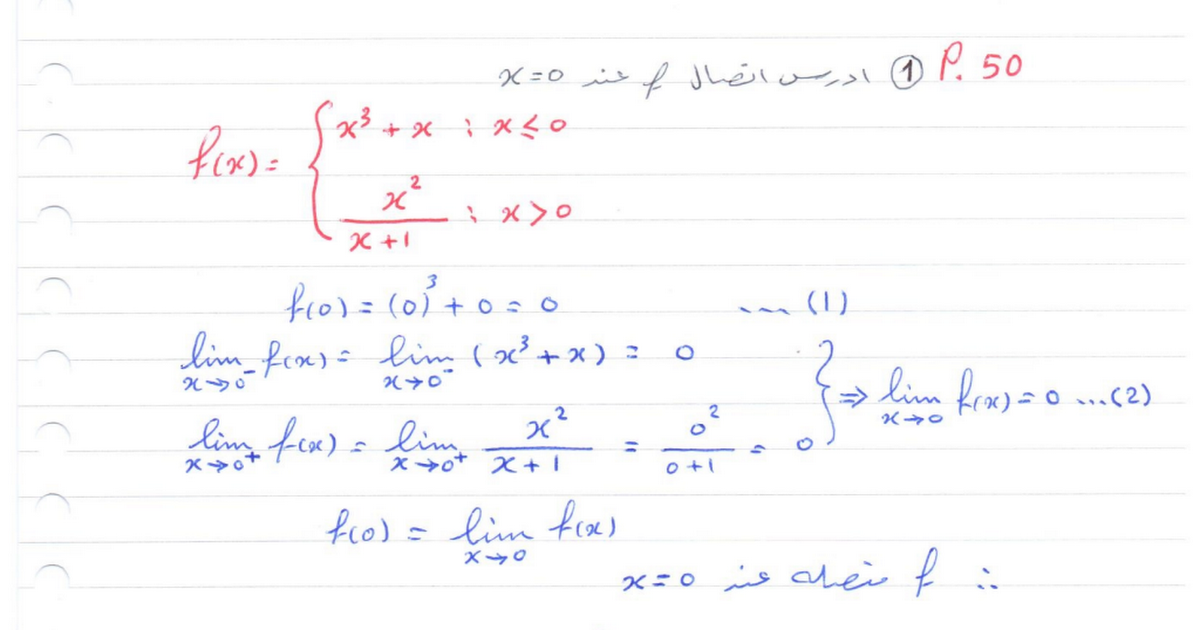 P. 50 ① ادرس اتصال f عند x=0
f(x) = { x³ + x ; x ≤ 0
x²/(x+1) ; x > 0
f(0) = (0)³ + 0 = 0 .... (1)
lim x→0⁻ f(x) = lim x→0⁻ (x³ + x) = 0
lim x→0⁺ f(x) = lim x→0⁺ x²/(x+1) = 0²/(0+1) = 0 } ⇒ lim x→0 f(x) = 0 ...(2)
f(0) = lim x→0 f(x)
∴ f متصلة عند x=0